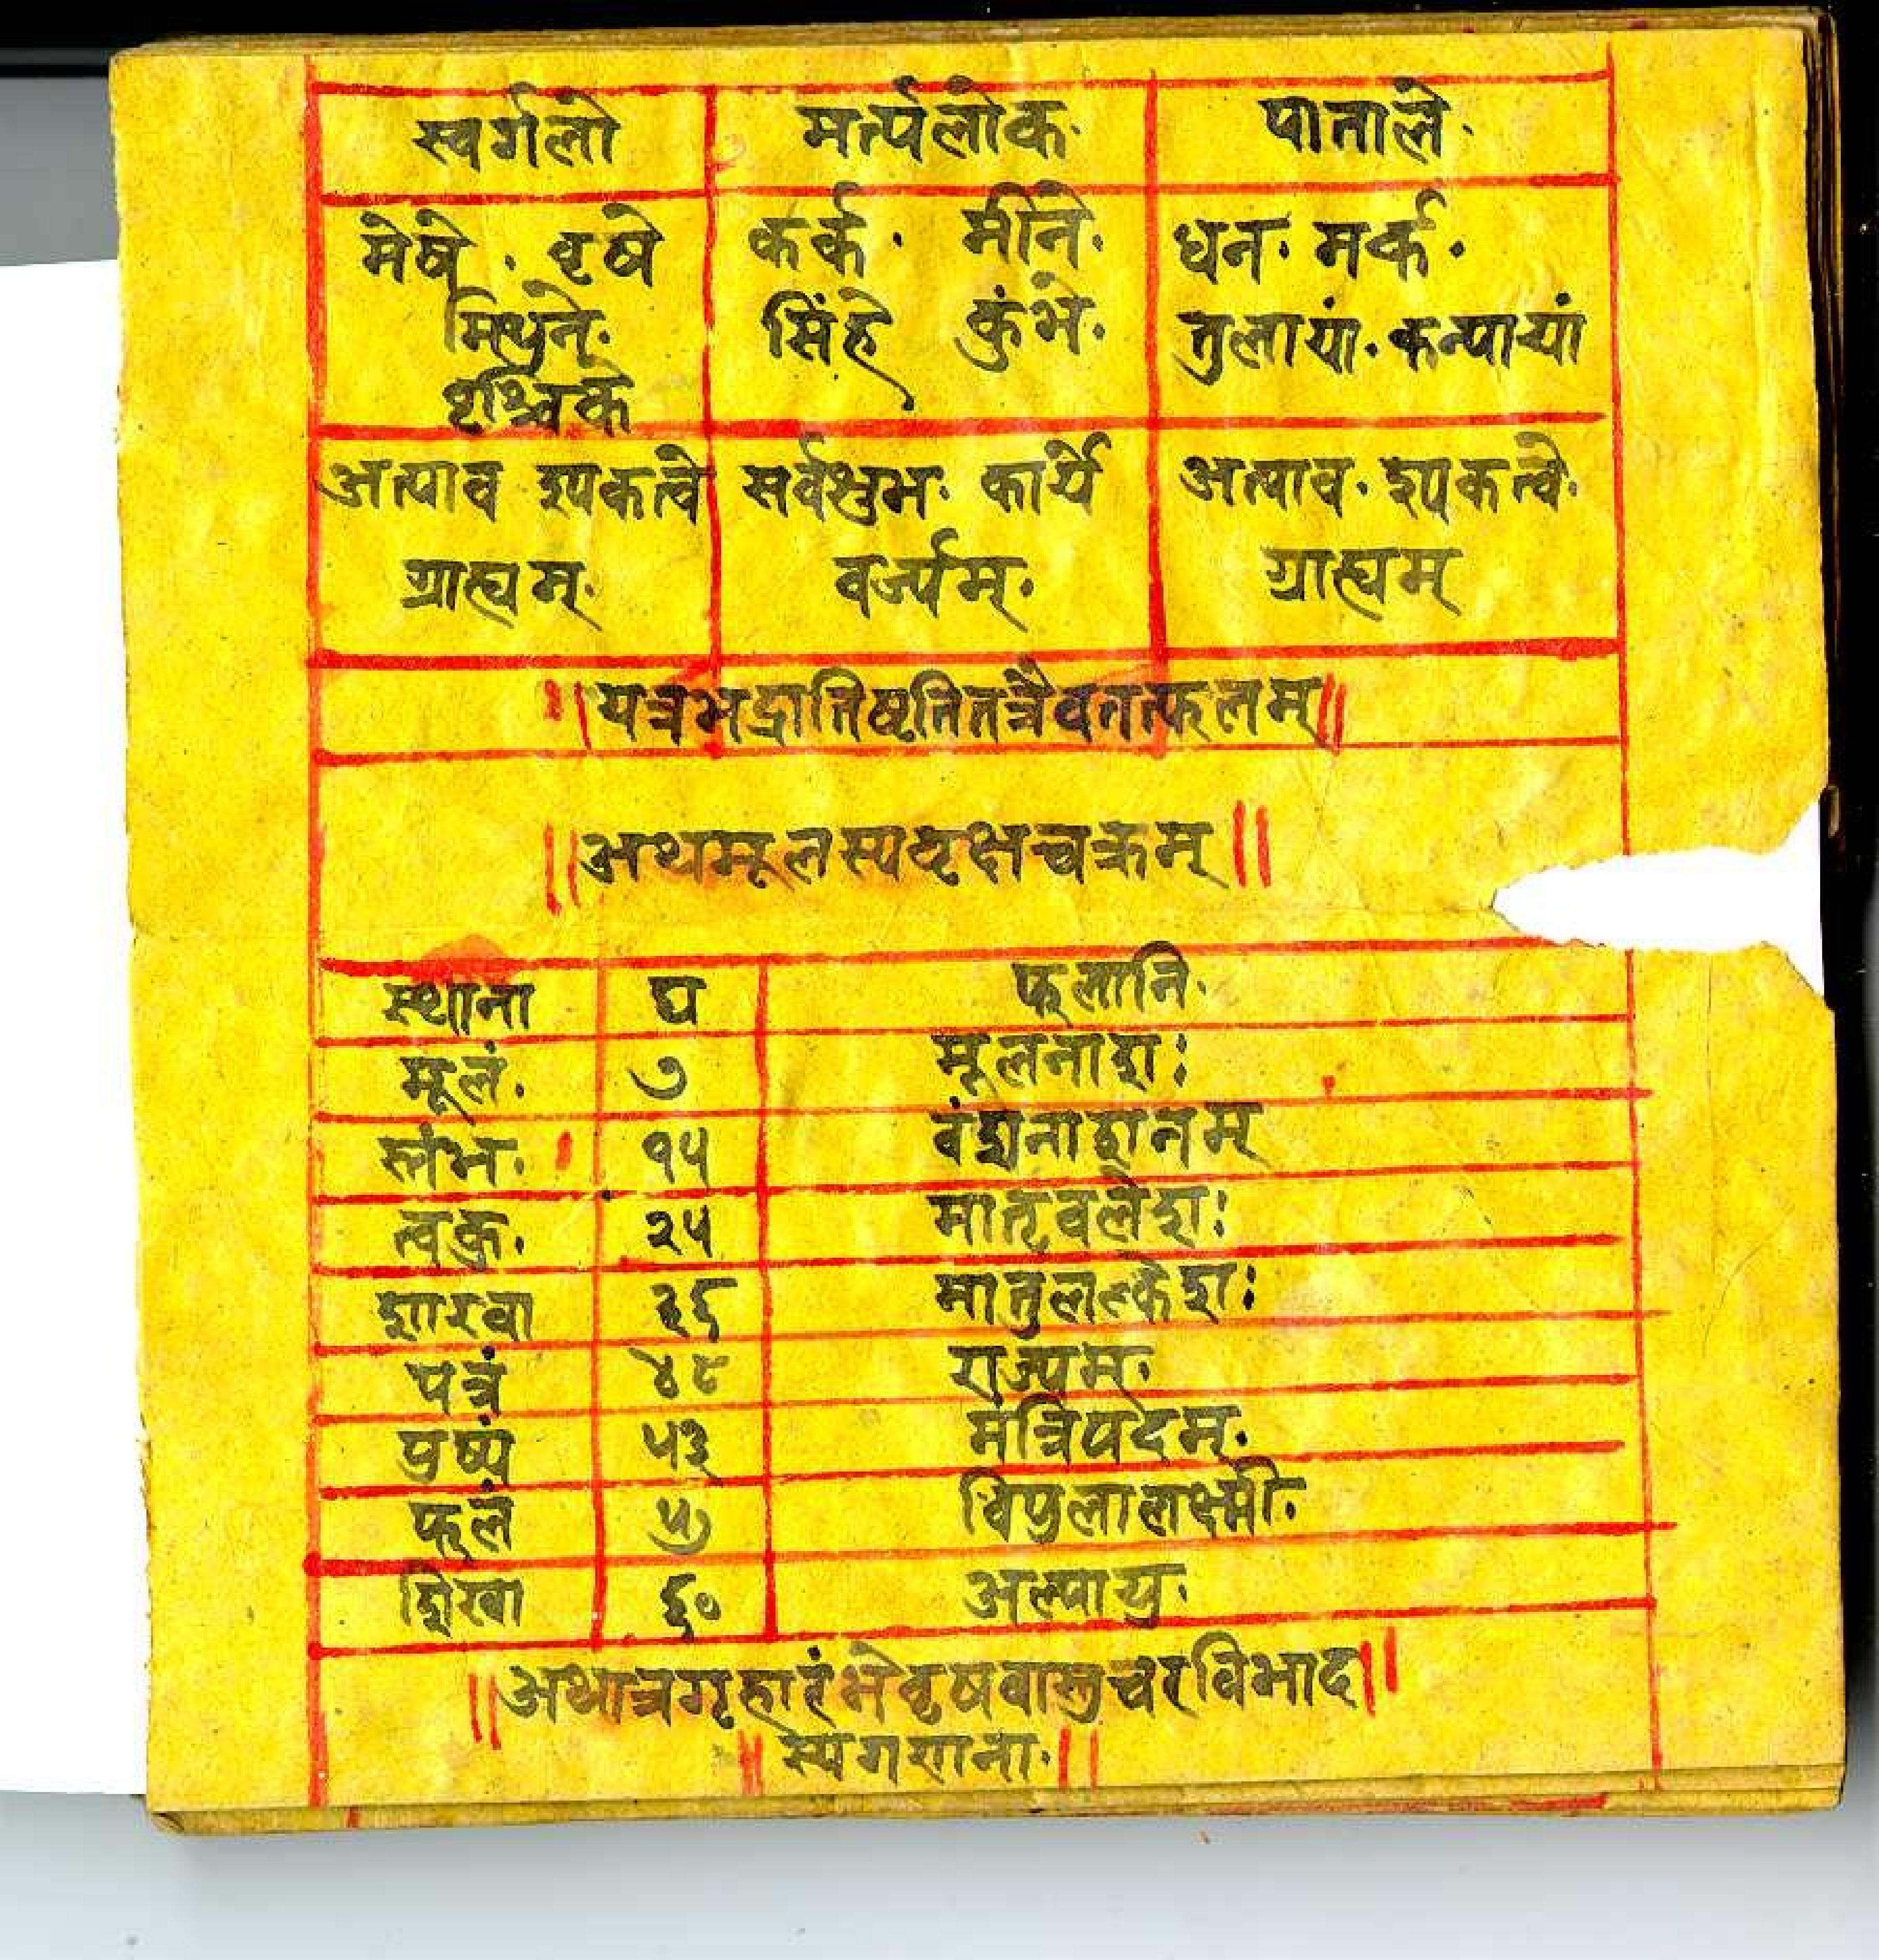 स्वर्गलो मर्त्यलोक. पाताले.
मेषे . वृषे कर्क . मीने. धन. मर्क .
मिथुने. सिंहे कुंभे. तुलायां. कन्यायां
वृश्चिके
अत्याव श्यकत्वे सर्वशुभ. कार्ये अत्याव . श्यकत्वे.
ग्राह्यम्. वर्ज्यम्. ग्राह्यम्
॥यत्रभद्रातिष्ठतितत्रैवतत्फलम्॥
॥अथमूलस्यवृक्षचक्रम्॥
स्थाना घ फलानि.
मूलं. ७ मूलनाशः
स्तंभ. १५ वंशनाशनम्
त्वक्. २५ मातृक्लेशः
शाखा ३६ मातुलक्लेशः
पत्रं ४८ राज्यम्.
पुष्पं ५३ मंत्रिपदम्.
फलं ५७ विपुलालक्ष्मी.
शिखा ६० अल्पायु.
॥अथात्रगृहारंभेवृषवास्तुचरविभाद॥
॥स्यगणाना.॥